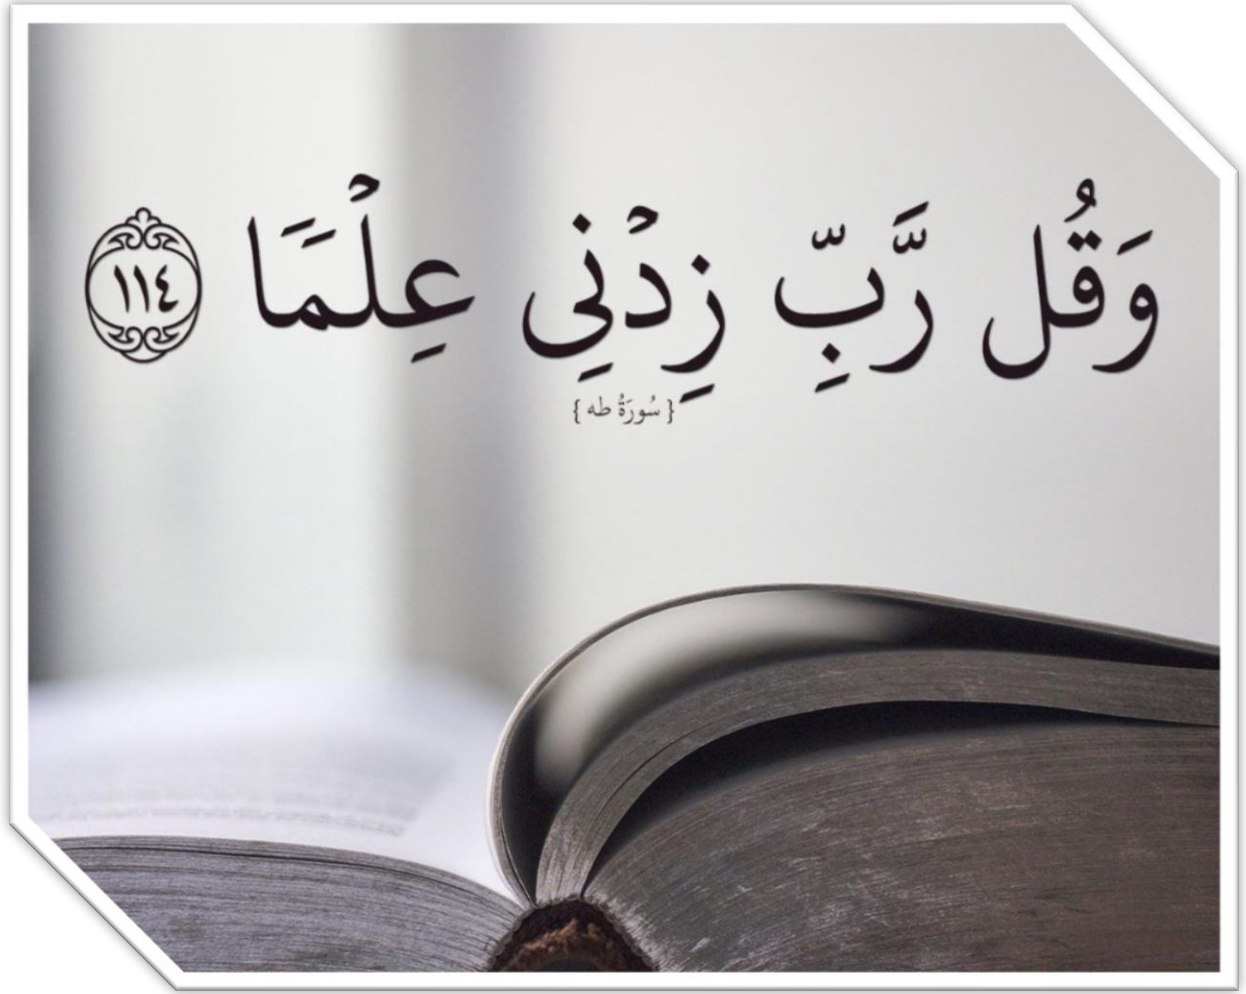 وَقُل رَّبِّ زِدْنِي عِلْمًا ١١٤
{ سُورَةُ طه }